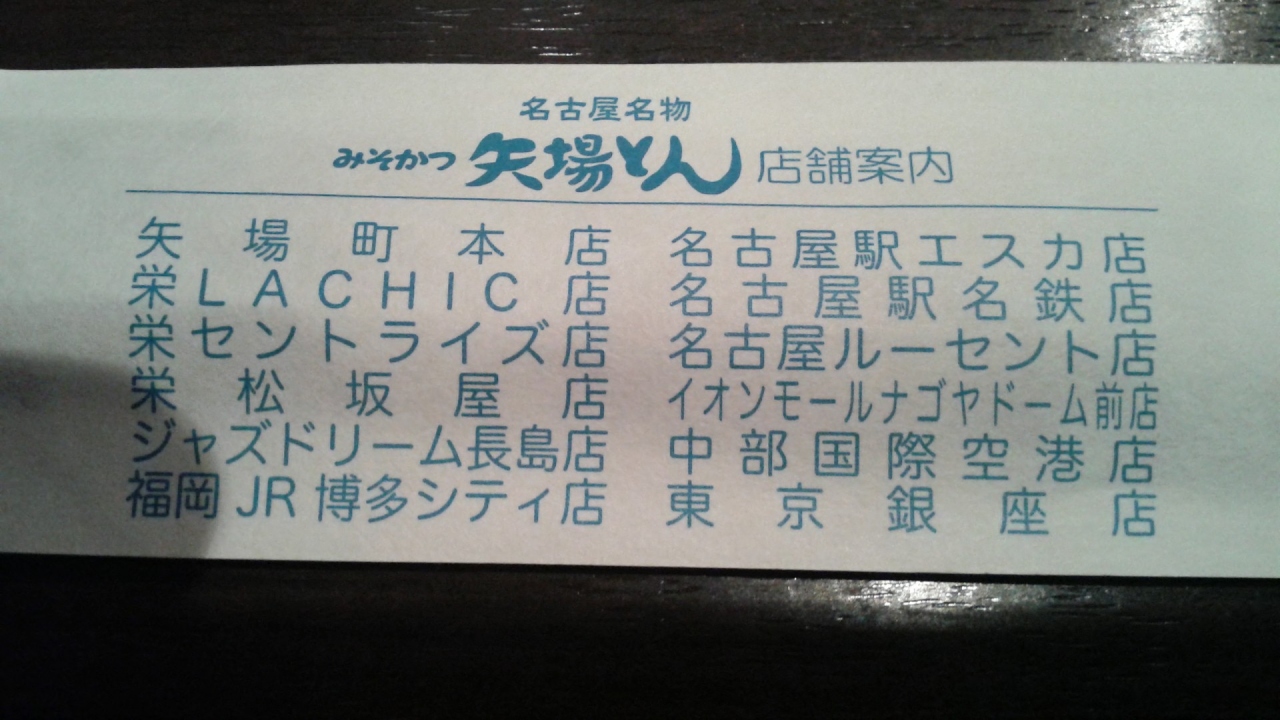 名古屋名物
みそかつ 矢場とん 店舗案内
矢場町本店 名古屋駅エスカ店
栄LACHIC店 名古屋駅名鉄店
栄セントライズ店 名古屋ルーセント店
栄松坂屋店 イオンモールナゴヤドーム前店
ジャズドリーム長島店 中部国際空港店
福岡JR博多シティ店 東京銀座店